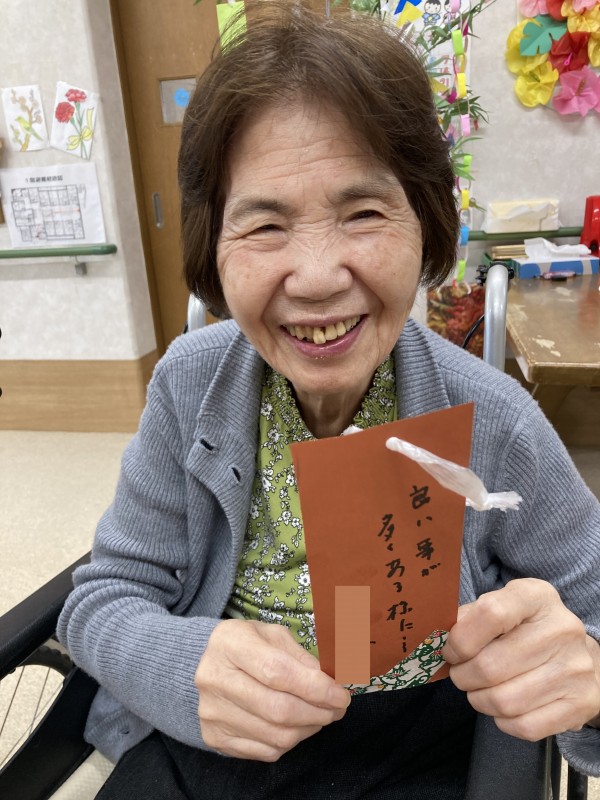 1階避難経路図
良い事が
多くある様に…